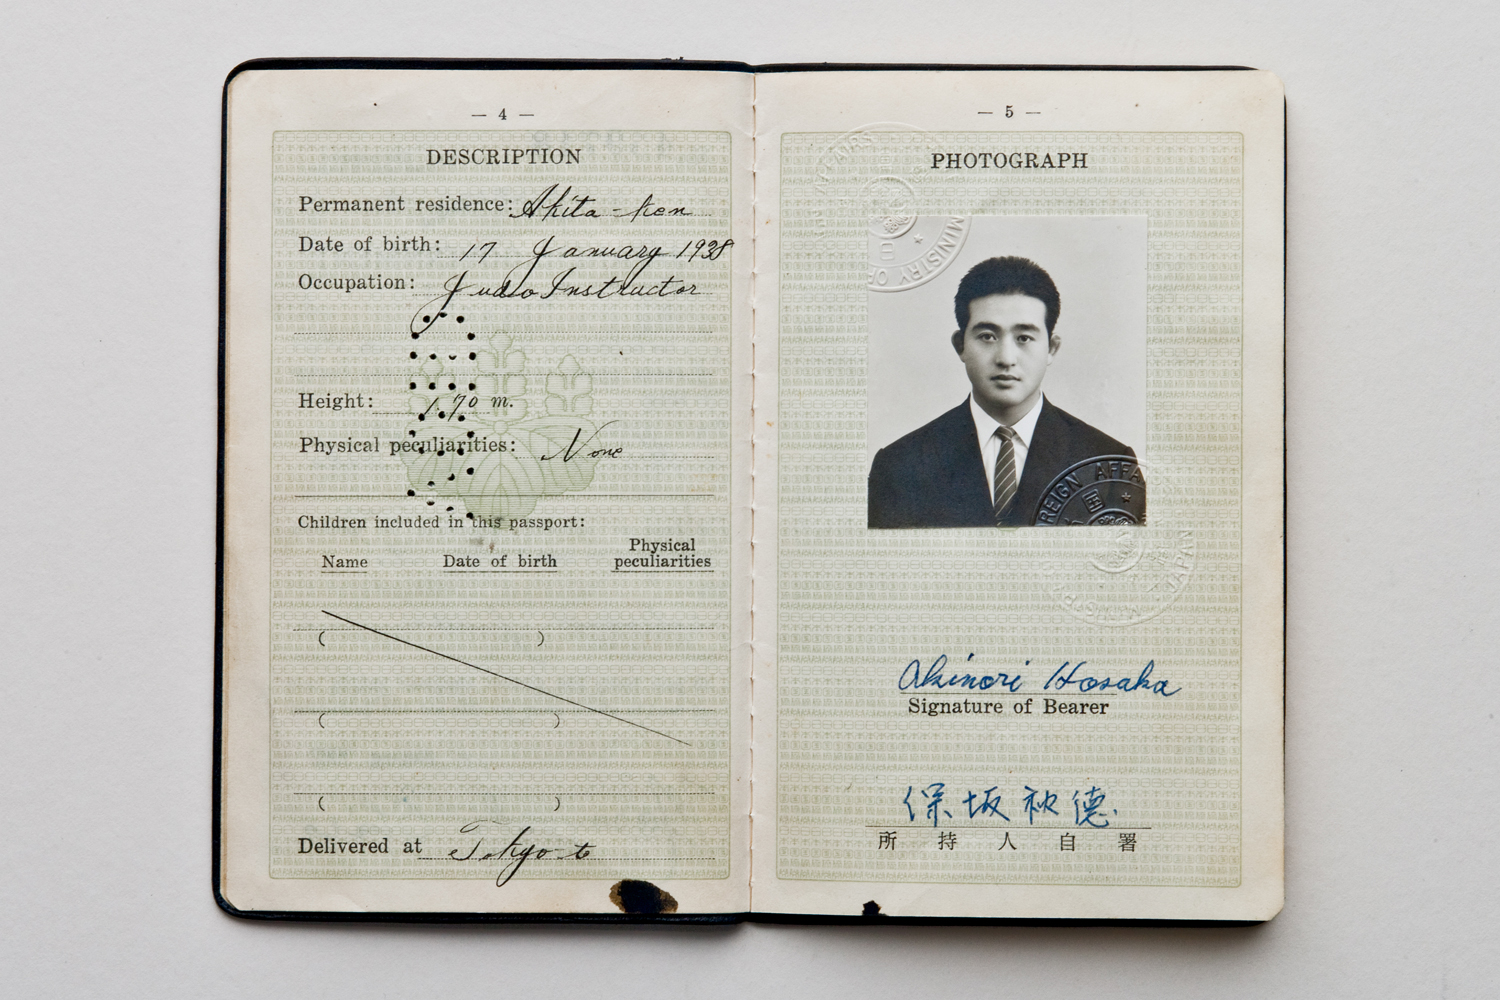 — 4 —
DESCRIPTION
Permanent residence: Akita-ken
Date of birth: 17 January 1938
Occupation: Judo Instructor
Height: 1.70 m.
Physical peculiarities: None
Children included in this passport:
Name Date of birth Physical peculiarities
( )
( )
( )
Delivered at Tokyo-to
— 5 —
PHOTOGRAPH
AFFAIRS
MINISTRY OF
REIGN AFFA
JAPAN
Akinori Hosaka
Signature of Bearer
保坂 德
所持人自署